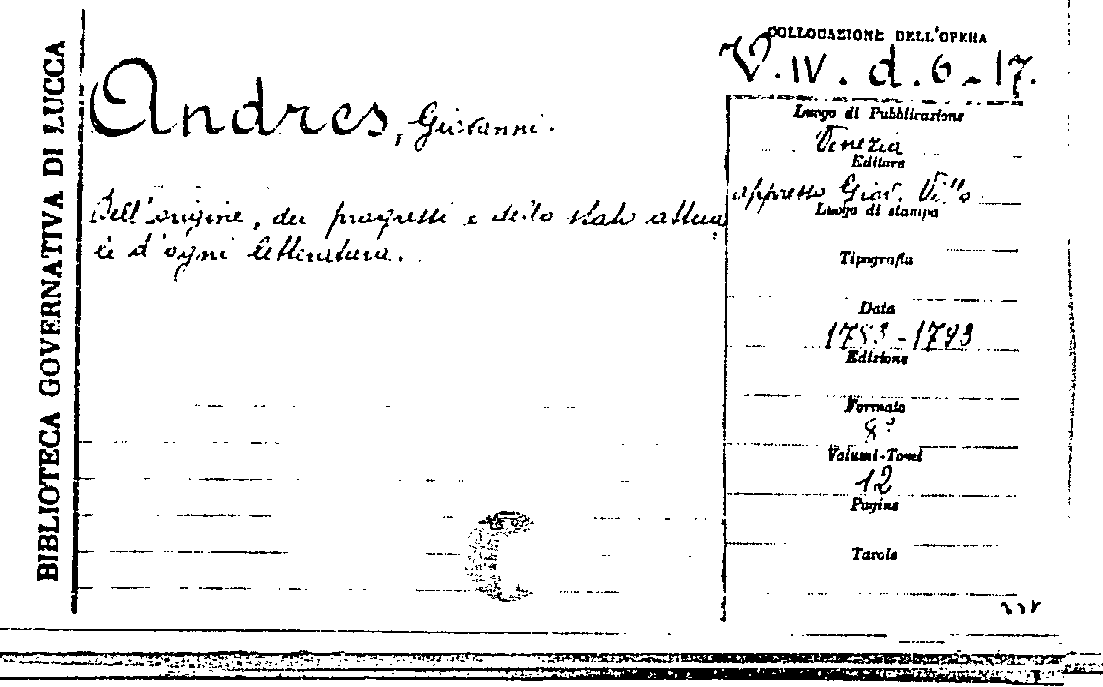 BIBLIOTECA GOVERNATIVA DI LUCCA
Andres, Giovanni.
Dell'origine, dei progressi e dello stato attua
le d'ogni letteratura.
COLLOCAZIONE DELL'OPERA
V. IV. d. 6-17.
Luogo di Pubblicazione
Venezia
Editore
appresso Giov. Vitto
Luogo di stampa
Tipografia
Data
1783-1793
Edizione
Formato
8°
Volumi-Tomi
12
Pagine
Tavole